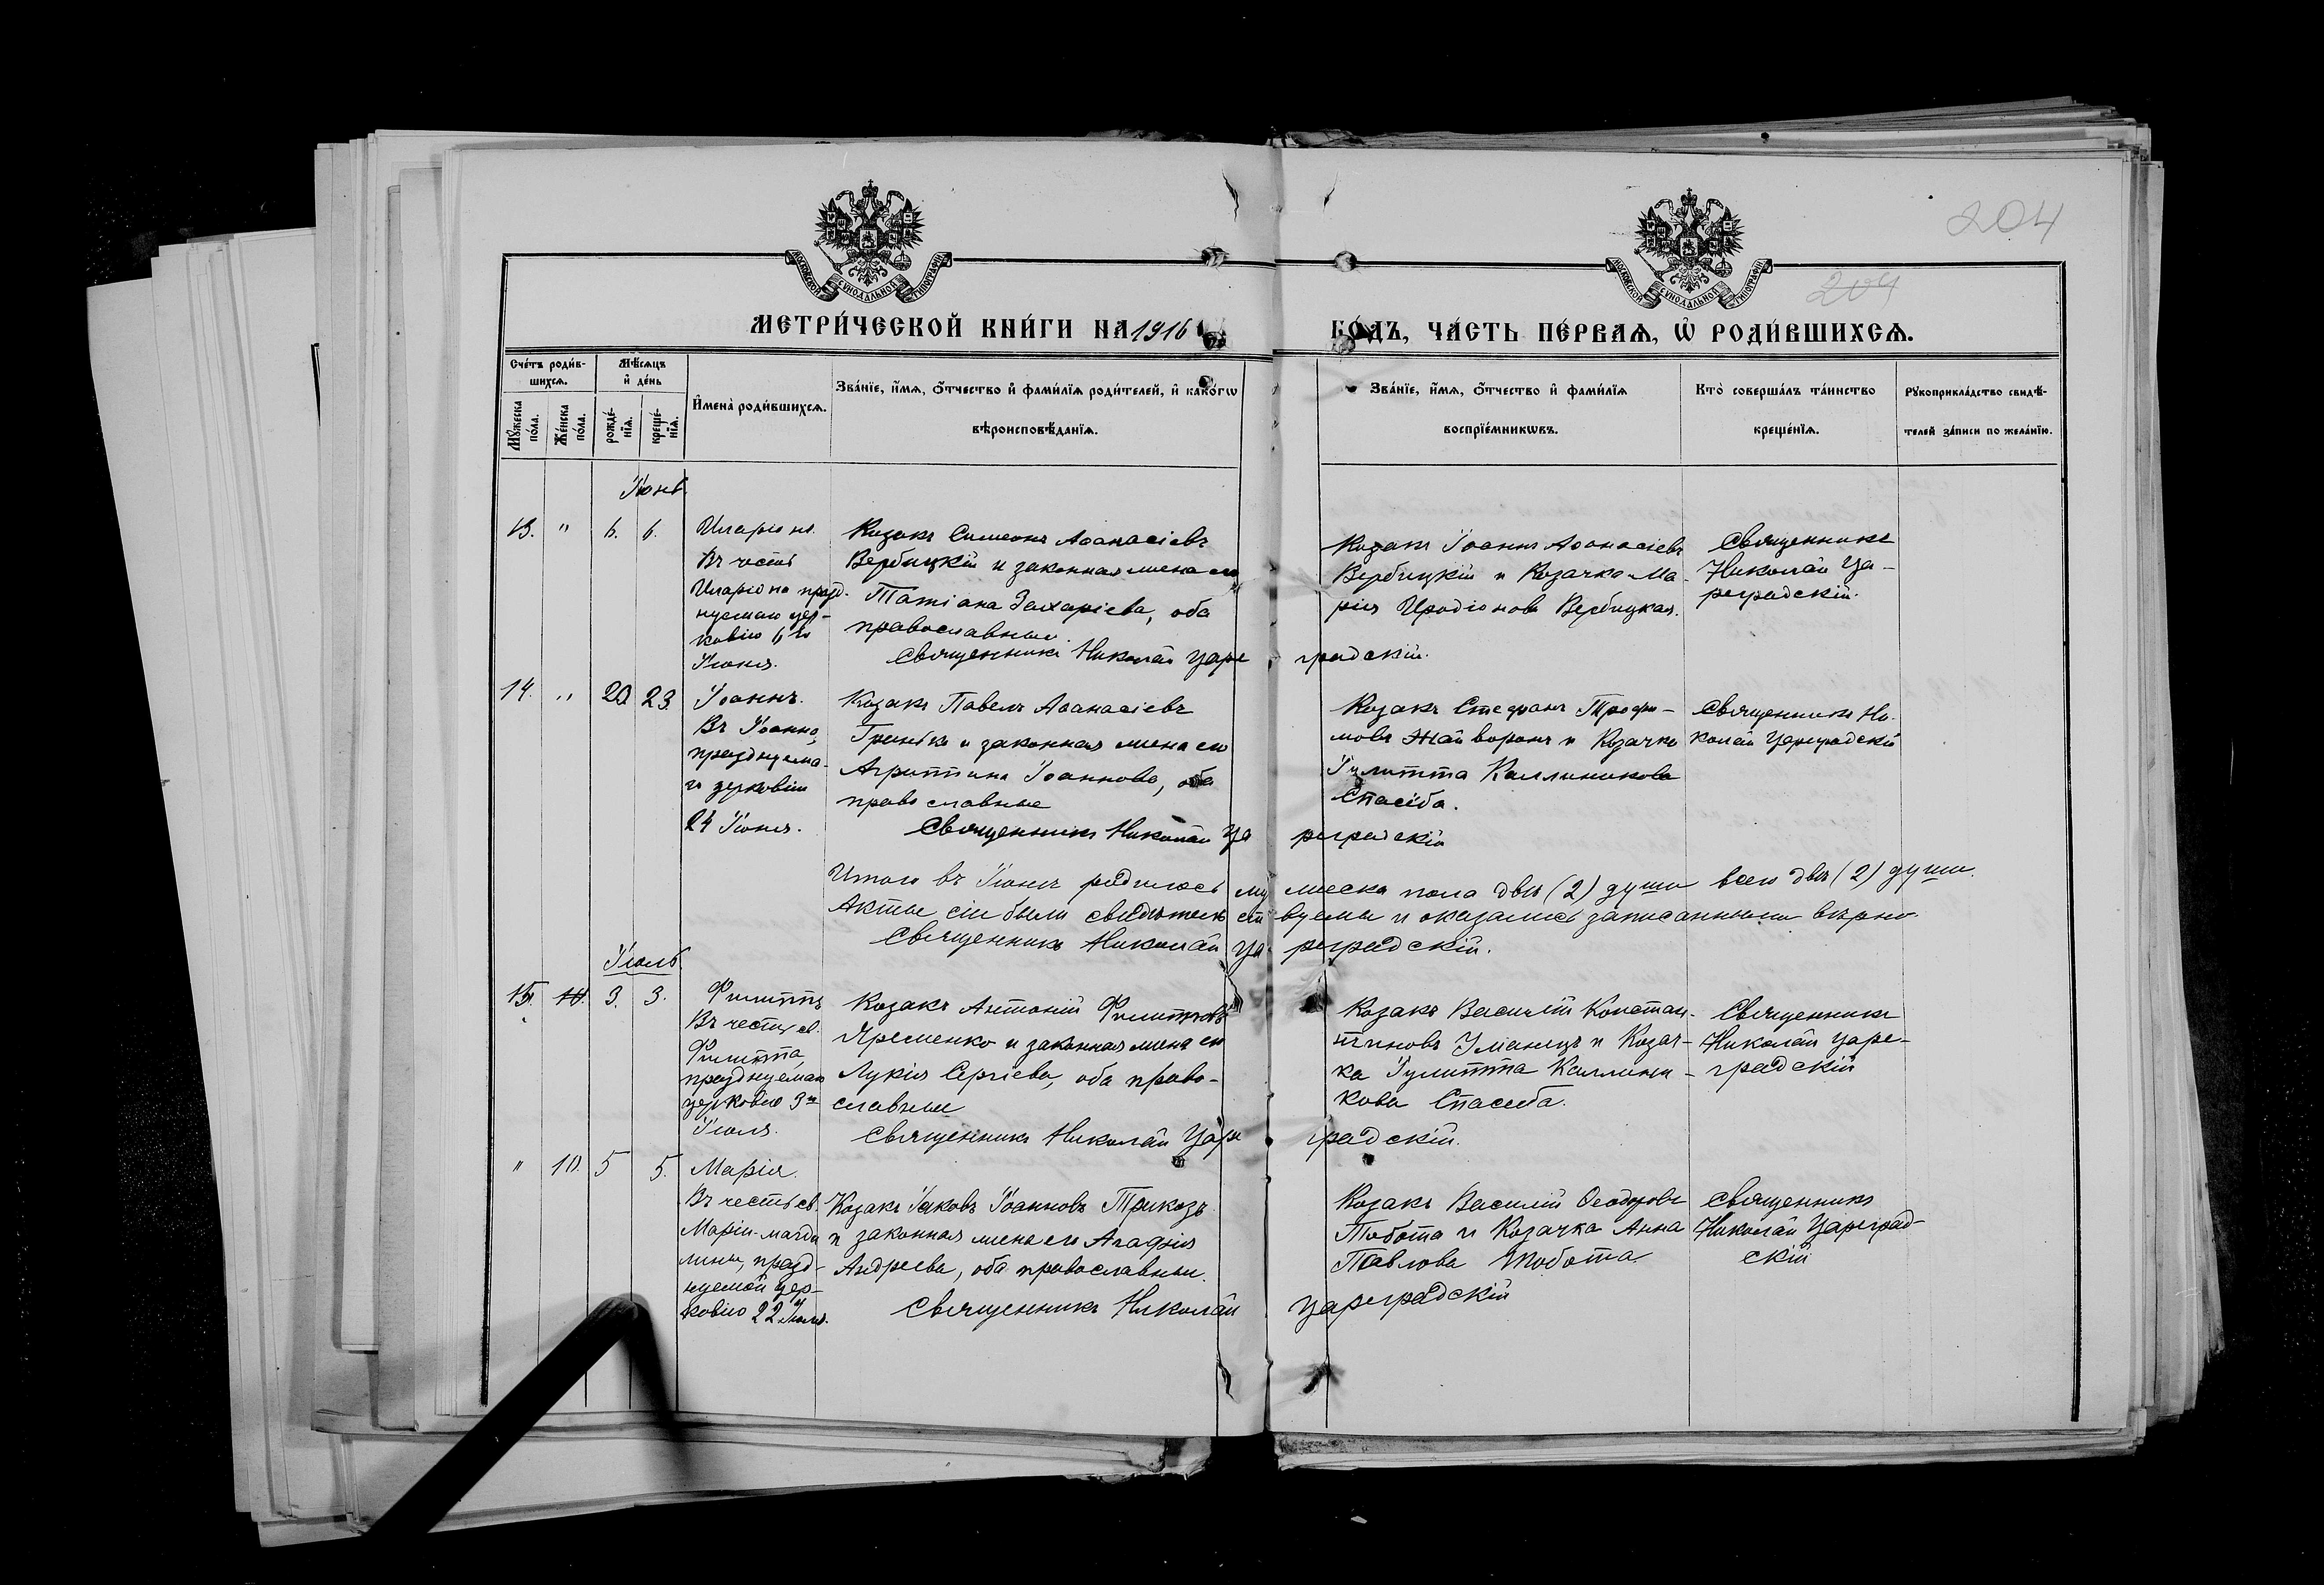 204
204
МОСКОВСКОЙ СѴНОДАЛЬНОЙ ТИПОГРАФІИ
МОСКОВСКОЙ СѴНОДАЛЬНОЙ ТИПОГРАФІИ
МЕТРИ́ЧЕСКОЙ КНИ́ГИ НА 1916
ГО́ДЪ, ЧА́СТЬ ПЕ́РВАѦ, Ѡ҆ РОДИ́ВШИХСѦ.
Сче́тъ роди́в-
шихсѧ.
Мѣ́сѧцъ
и҆ де́нь
Мꙋ́жеска
по́ла.
Же́нска
по́ла.
рожде́-
нїѧ.
креще́-
нїѧ.
И҆мена̀ роди́вшихсѧ.
Зва́нїе, и҆́мѧ, ѻ҆́тчество и҆ фами́лїѧ роди́телей, и҆ како́гѡ
вѣроисповѣ́данїѧ.
Зва́нїе, и҆́мѧ, ѻ҆́тчество и҆ фами́лїѧ
воспрїе́мникѡвъ.
Кто̀ соверша́лъ та́инство
креще́нїѧ.
Рꙋкоприкла́дство свидѣ́-
телей за́писи по жела́нїю.
Іюнь
13. " 6. 6.
Иларіонъ.
Въ честь
Иларіона празд-
нуемаго цер-
ковію 6го
Іюня.
Козакъ Симеонъ Аѳанасіевъ
Вербицкій и законная жена его
Татіана Захаріева, оба
православные.
Священникъ Николай Цареградскій.
Козакъ Іоаннъ Аѳанасіевъ
Вербицкій и Козачка Ма-
рія Иродіонова Вербицкая.
Священникъ
Николай Ца-
реградскій.
14. " 20 23.
Іоаннъ.
Въ Іоанна,
празднуема-
го церковію
24 Іюня.
Козакъ Павелъ Аѳанасіевъ
Гринько и законная жена его
Агриппина Іоаннова, оба
православные
Священникъ Николай Цареградскій
Козакъ Стефанъ Трофи-
мовъ Жайворонъ и Козачка
Іулитта Каллиникова
Спасиба.
Священникъ Ни-
колай Цареградскій
Итого въ Іюнѣ родилось мужеска пола двѣ (2) души всего двѣ (2) души.
Акты сіи были свидѣтельствуемы и оказались записанными вѣрно
Священникъ Николай Цареградскій.
Іюль
15. 10. 3. 3.
Филиппъ
Въ честь св.
Филиппа,
празднуемаго
церковію 3го
Іюля.
Козакъ Антоній Филипповъ
Яременко и законная жена его
Лукія Сергіева, оба право-
славные
Священникъ Николай Цареградскій.
Козакъ Василій Констан-
тиновъ Уманецъ и Козач-
ка Іулитта Каллини-
кова Спасиба.
Священникъ
Николай Царе-
градскій
" 10. 5 5.
Марія.
Въ честь св.
Маріи-магда
лины, празд-
нуемой цер-
ковію 22 Іюля.
Козакъ Іаковъ Іоанновъ Трикозъ
и законная жена его Агафія
Андреева, оба православные.
Священникъ Николай Цареградскій
Козакъ Василій Ѳеодоровъ
Тобота и Козачка Анна
Павлова Тобота.
Священникъ
Николай Цареград-
скій